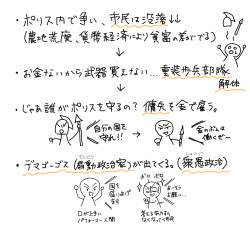 ・ポリス内で争い、市民は没落↓↓
(農地荒廃、貨幣経済により貧富の差がでる)
↓
・お金ないから武器買えない…重装歩兵部隊
解体
↓
・じゃあ誰がポリスを守るの？ 傭兵を金で雇う。
自分の国を
守れ!!
→
金のぶんは
働くぜ〜
↓
・デマゴーゴス(扇動政治家)が出てくる。(衆愚政治)
国を
口が上手い
パフォーマー人間